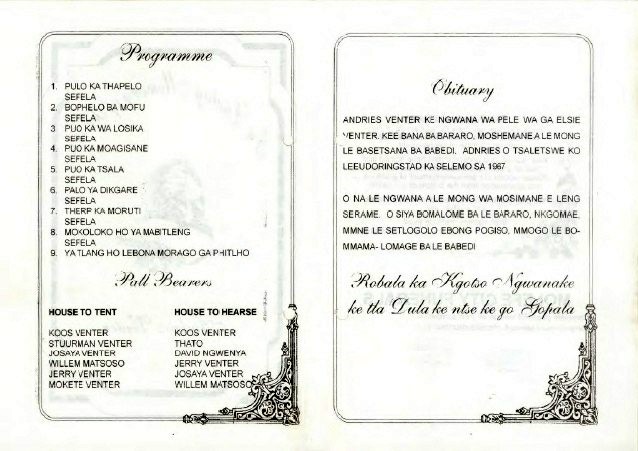 Programme
1. PULO KA THAPELO
SEFELA
2. BOPHELO BA MOFU
SEFELA
3 PUO KA WA LOSIKA
SEFELA
4. PUO KA MOAGISANE
SEFELA
5. PUO KA TSALA
SEFELA
6. PALO YA DIKGARE
SEFELA
7. THERP KA MORUTI
SEFELA
8. MOKOLOKO HO YA MABITLENG
SEFELA
9. YA TLANG HO LEBONA MORAGO GA PHITLHO
Pall Bearers
HOUSE TO TENT HOUSE TO HEARSE
KOOS VENTER KOOS VENTER
STUURMAN VENTER THATO
JOSAYA VENTER DAVID NGWENYA
WILLEM MATSOSO JERRY VENTER
JERRY VENTER JOSAYA VENTER
MOKETE VENTER WILLEM MATSOSO
Obituary
ANDRIES VENTER KE NGWANA WA PELE WA GA ELSIE
VENTER. KEE BANA BA BARARO, MOSHEMANE A LE MONG
LE BASETSANA BA BABEDI. ADNRIES O TSALETSWE KO
LEEUDORINGSTAD KA SELEMO SA 1967
O NA LE NGWANA A LE MONG WA MOSIMANE E LENG
SERAME. O SIYA BOMALOME BA LE BARARO, NKGOMAE,
MMNE LE SETLOGOLO EBONG POGISO, MMOGO LE BO-
MMAMA- LOMAGE BA LE BABEDI
Robala ka Kgotso Ngwanake
ke tla Dula ke ntse ke go Gopala